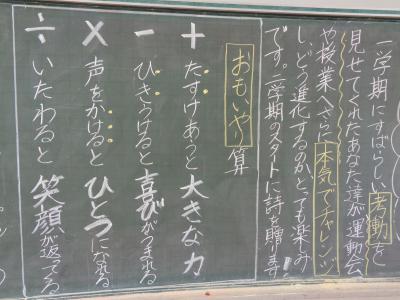 一学期にすばらしい考動を
見せてくれたあなた達が運動会
や授業へさらに本気でチャレンジ
し、どう進化するのか、とても楽しみ
です。二学期のスタートに詩を贈ります!
おもいやり算
＋ たすけあうと大きな力
－ ひきうけると喜びがうまれる
× 声をかけるとひとつになれる
÷ いたわると笑顔が返ってくる